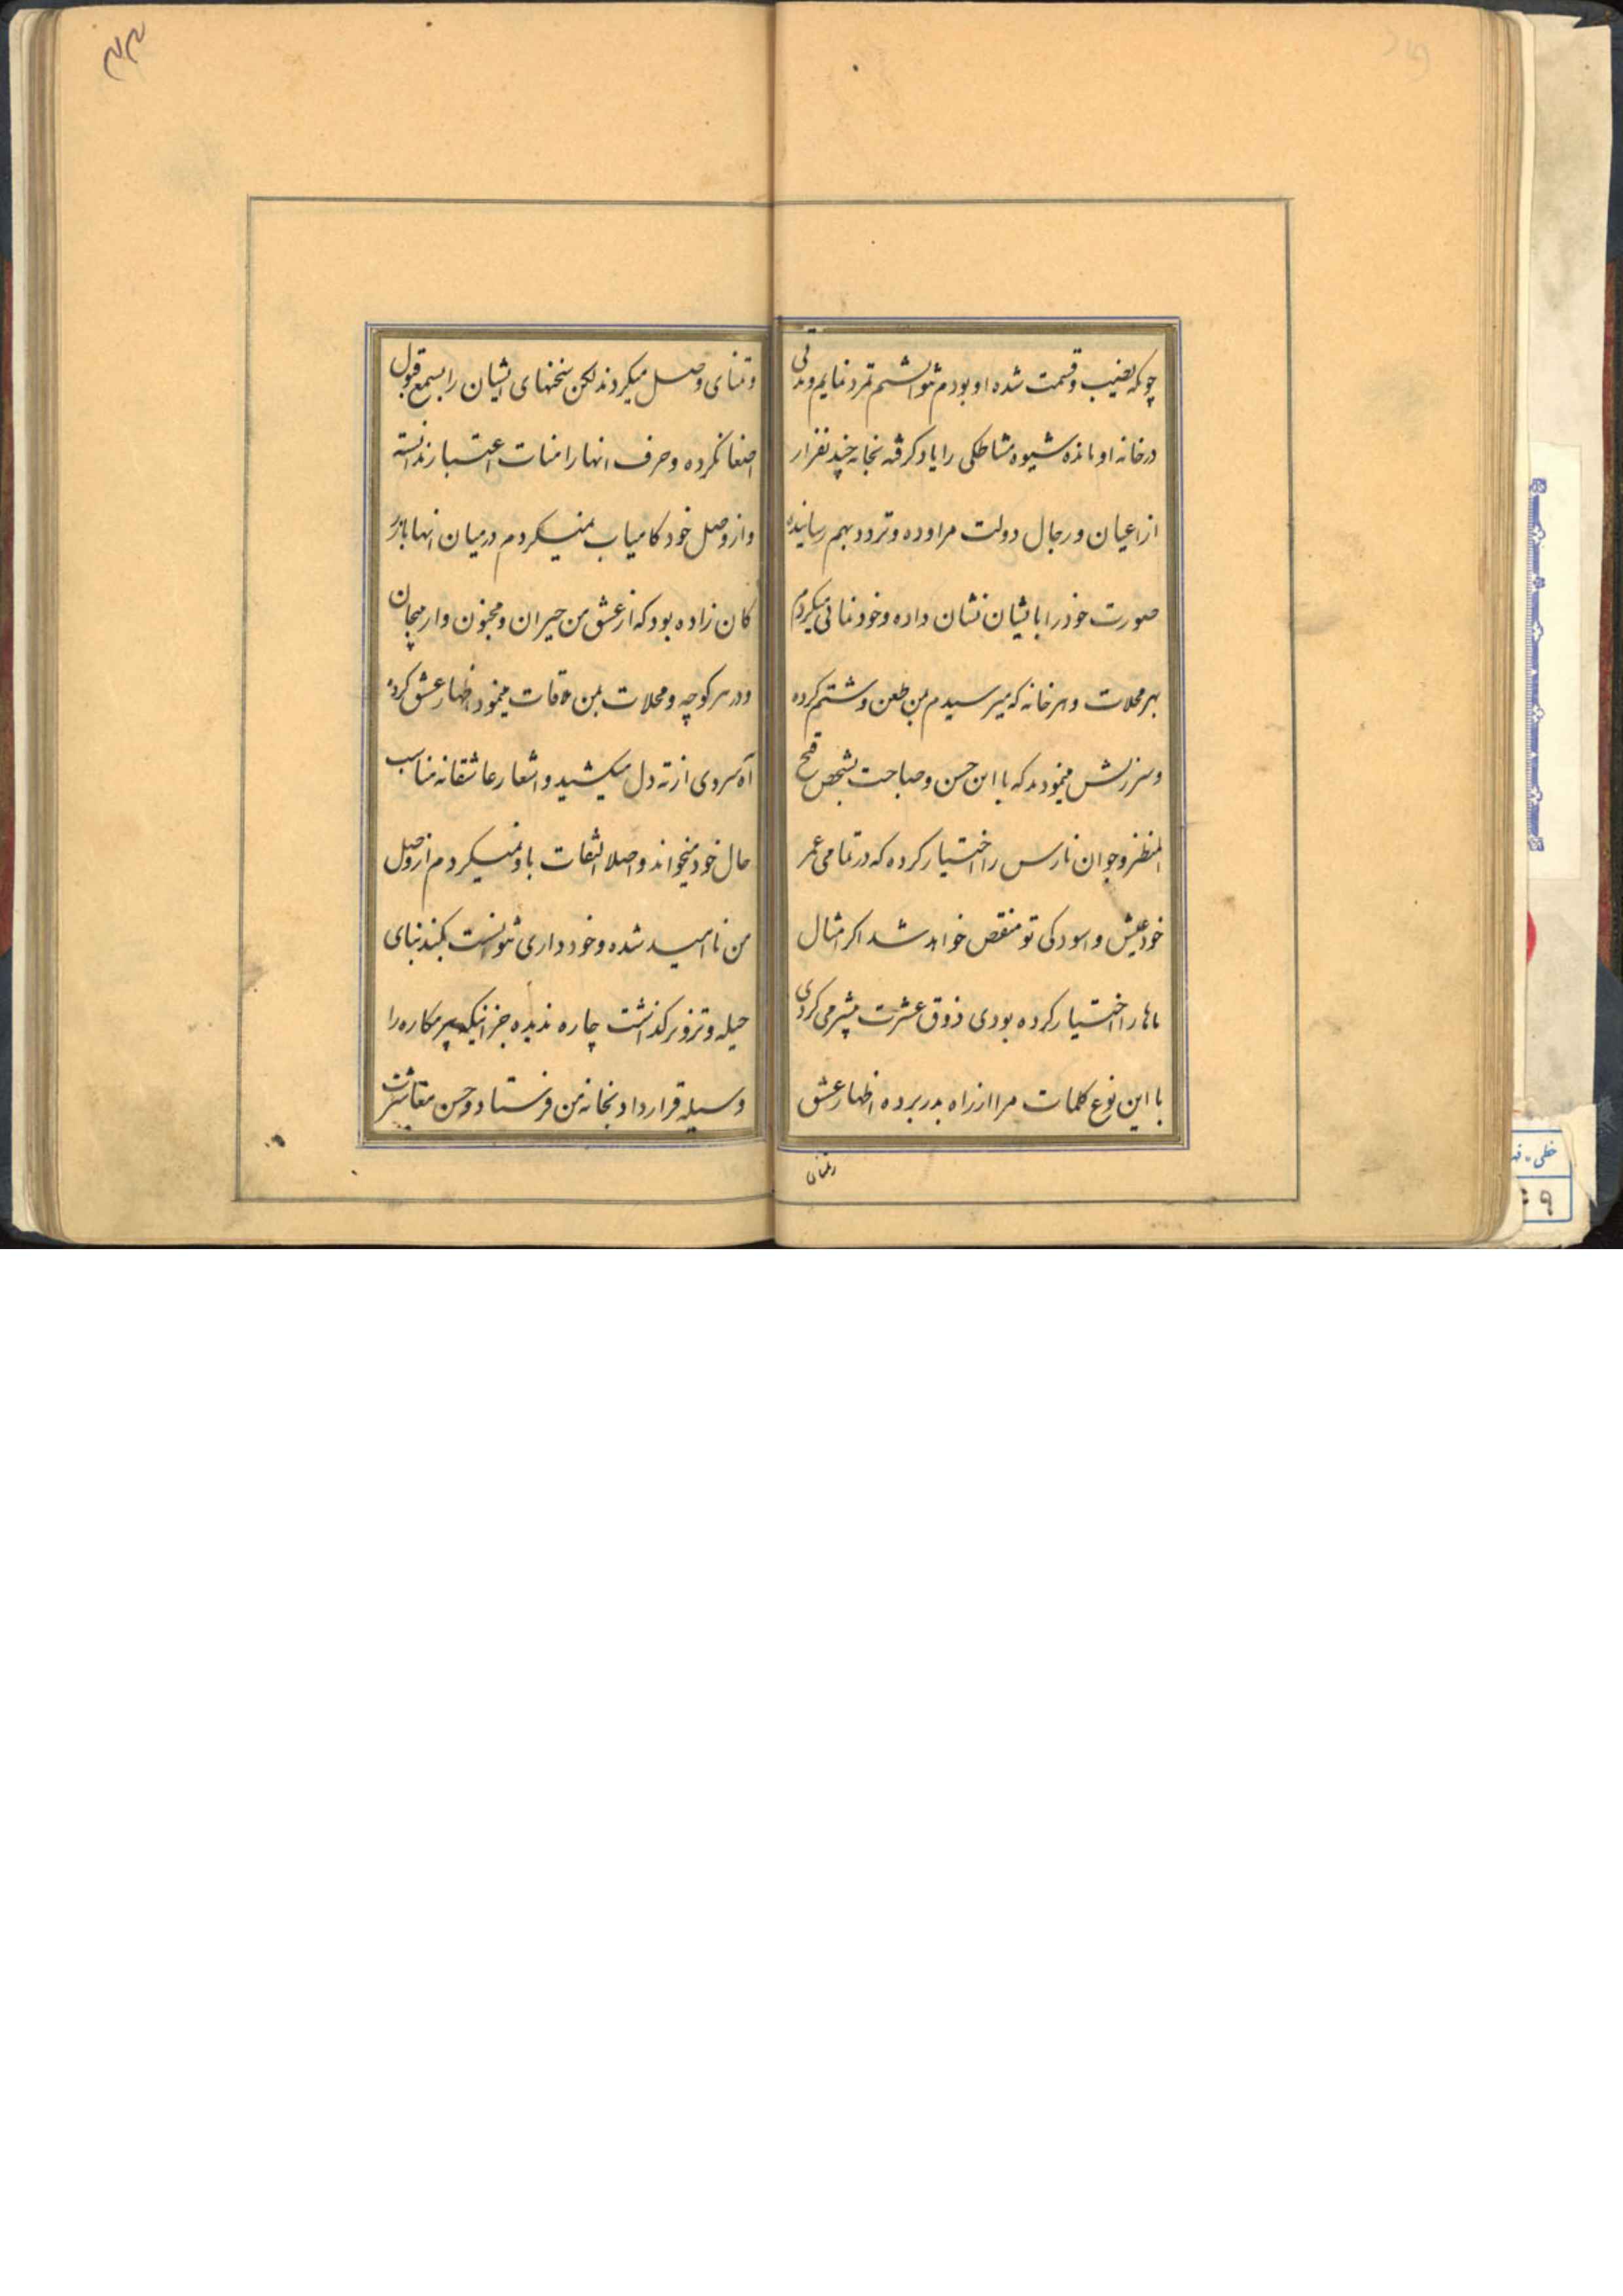 چونکه نصیب و قسمت شده او بودم نتوانستم تمرد نمایم و مدتی
در خانه او مانده شیوه مشاطکی را یاد کرفته بخانه چند نفر از
از اعیان و رجال دولت مراوده و تردد بهم رسانیده
صورت خود را بایشان نشان داده و خود نمائی میکردم
بهر محلات و هر خانه که میرسیدم بمن طعن و شتم کرده
و سرزنش مینمودند که با این حسن و صباحت بشخص قبیح
المنظر و جوان نارس را اختیار کرده که در تمامی عمر
خود عیش و اسودکی تو منقص خواهد شد اکر امثال
ماها را اختیار کرده بودی ذوق عشرت بیشتر می کردی
با این نوع کلمات مرا از راه بدر برده اظهار عشق
وتمنای
و تمنای وصل میکردند لکن سخنهای ایشان را بسمع قبول
اصغا نکرده و حرف انها را اعتبار ندانسته
و از وصل خود کامیاب نمیکردم در میان انها
کان زاده بود که از عشق من حیران و مجنون وار
و در هر کوچه و محلات بمن ملاقات مینمود اظهار عشق کرده
آه سردی از ته دل میکشید و اشعار عاشقانه مناسب
حال خود میخواند و اصلا التفات باو نمیکردم از وصل
من ناامید شده و خود داری نتوانست بکند بنای
حیله و تزویر کذاشت چاره ندیده جز اینکه پیر مکاره را
وسیله قرار داد بخانه من فرستاد و حسن معاشرت
خطی
۹